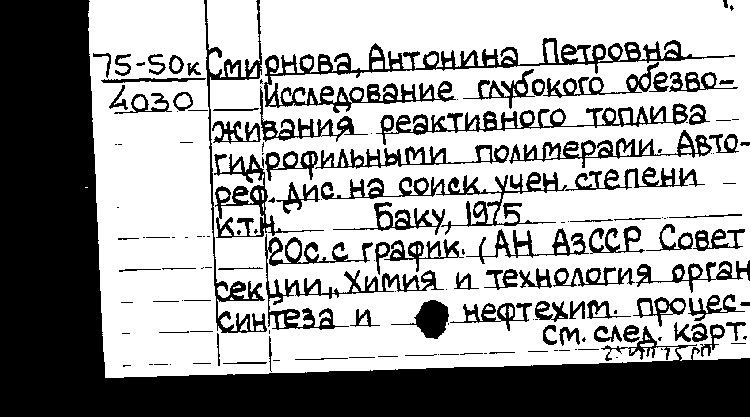 75-50к Смирнова, Антонина Петровна.
4030 Исследование глубокого обезво-
живания реактивного топлива
гидрофильными полимерами. Авто-
реф. дис. на соиск. учен. степени
к.т.н. Баку, 1975.
20с. с график. (АН АзССР. Совет
секции „Химия и технология орган
синтеза и нефтехим. процес-
см. след. карт.